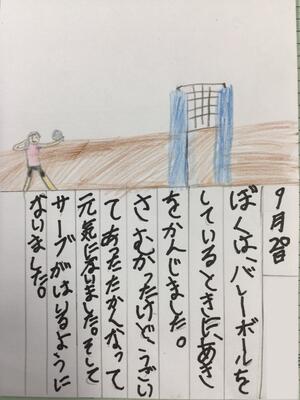 9月20日
ぼくは、バレーボールを
しているときに、あき
をかんじました。
ささむかったけど、うごい
てあったたかくなって
元気になりました。そして
サーブがはいるように
なりました。